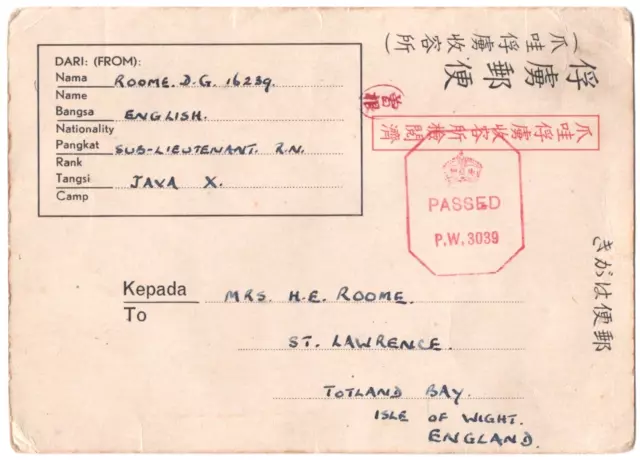 DARI: (FROM):
Nama ROOME. D.G. 16239.
Name
Bangsa ENGLISH.
Nationality
Pangkat SUB-LIEUTENANT. R.N.
Rank
Tangsi JAVA X.
Camp
俘虜郵便
(爪哇俘虜收容所)
爪哇俘虜收容所檢閲濟
PASSED
P.W. 3039
郵便はがき
Kepada MRS. H.E. ROOME.
To
ST. LAWRENCE.
TOTLAND BAY.
ISLE OF WIGHT.
ENGLAND.